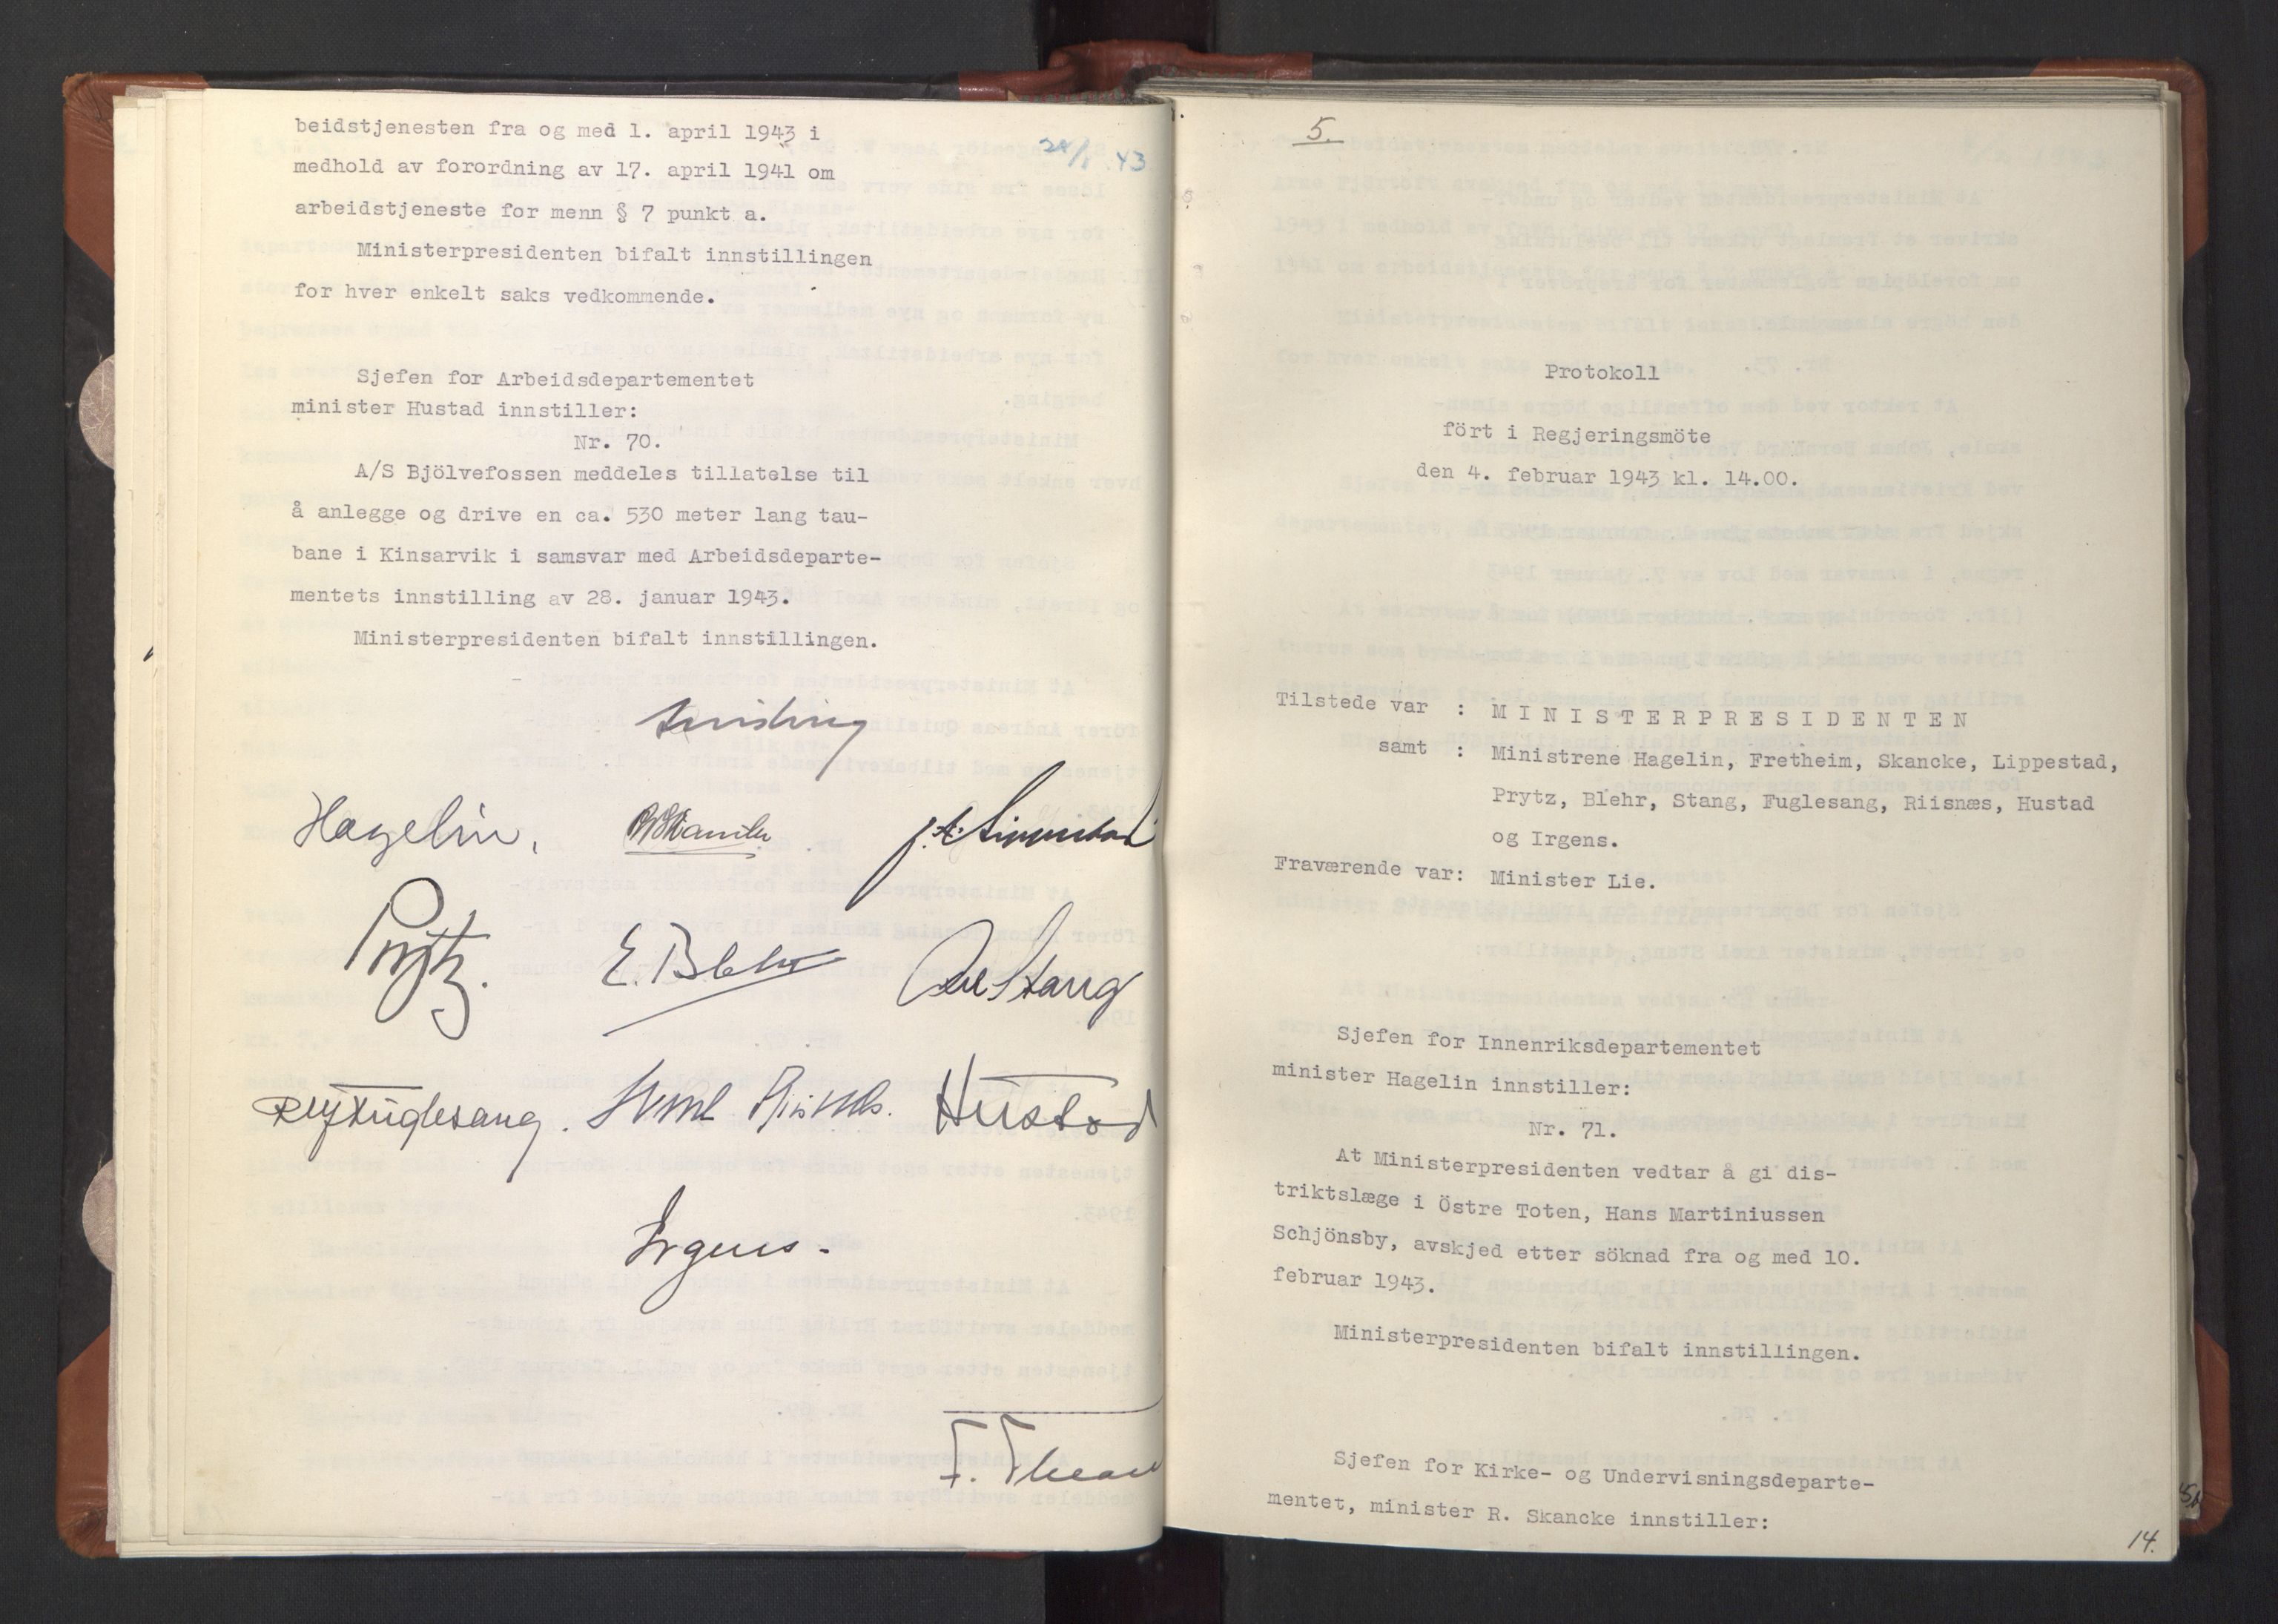 beidstjenesten fra og med 1. april 1943 i
medhold av forordning av 17. april 1941 om
arbeidstjeneste for menn § 7 punkt a.
Ministerpresidenten bifalt innstillingen
for hver enkelt saks vedkommende.
Sjefen for Arbeidsdepartementet
minister Hustad innstiller:
Nr. 70.
A/S Bjölvefossen meddeles tillatelse til
å anlegge og drive en ca. 530 meter lang tau-
bane i Kinsarvik i samsvar med Arbeidsdeparte-
mentets innstilling av 28. januar 1943.
Ministerpresidenten bifalt innstillingen.
Hagelin.
Prytz.
E. Blehr
Axel Stang
Fuglesang.
Riisnæs.
Hustad
Irgens.
5.
Protokoll
fört i Regjeringsmöte
den 4. februar 1943 kl. 14.00.
Tilstede var : MINISTERPRESIDENTEN
samt : Ministrene Hagelin, Fretheim, Skancke, Lippestad,
Prytz, Blehr, Stang, Fuglesang, Riisnæs, Hustad
og Irgens.
Fraværende var: Minister Lie.
Sjefen for Innenriksdepartementet
minister Hagelin innstiller:
Nr. 71.
At Ministerpresidenten vedtar å gi dis-
triktslæge i Östre Toten, Hans Martiniussen
Schjönsby, avskjed etter söknad fra og med 10.
februar 1943.
Ministerpresidenten bifalt innstillingen.
Sjefen for Kirke- og Undervisningsdeparte-
mentet, minister R. Skancke innstiller:
14.